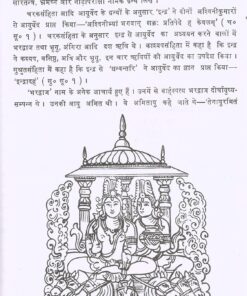 चरकसंहिता आदि आयुर्वेद के ग्रन्थों के अनुसार 'इन्द्र' ने दोनों अश्विनीकुमारों
से आयुर्वेद प्राप्त किया—'अश्विनीभ्यां भगवान् शक्रः प्रतिपेदे ह केवलम्' (च०
सू० १) । चरकसंहिता के अनुसार इन्द्र से आयुर्वेद का अध्ययन करने वालों में
भरद्वाज तथा भृगु, अंगिरा आदि दश ऋषि थे । काश्यपसंहिता में कहा है कि इन्द्र
ने कश्यप, वसिष्ठ, अत्रि और भृगु, इन चार ऋषियों को आयुर्वेद का उपदेश किया ।
सुश्रुतसंहिता में कहा है कि इन्द्र से 'धन्वन्तरि' ने आयुर्वेद का ज्ञान प्राप्त किया—
'इन्द्रादहं' (सु० सू० १) ।
'भरद्वाज' नाम के अनेक आचार्य हुए हैं । उनमें से बार्हस्पत्य भरद्वाज दीर्घायुष्य-
सम्पन्न थे । उनकी आयु अमित थी । वे अमितायु कहे जाते थे—'तेनायुरमितं